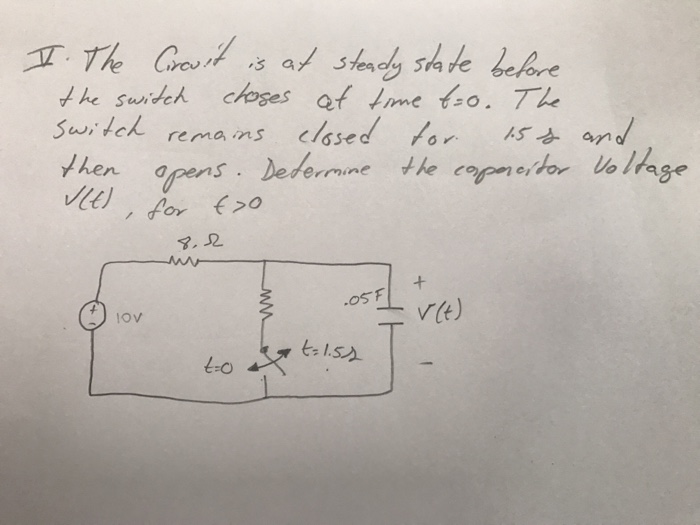 V. The Circuit is at steady state before
the switch closes at time t=0. The
Switch remains closed for 1.5 s and
then opens. Determine the capacitor Voltage
V(t), for t>0
8. Ω
.05F
+
10V
V(t)
t=0
t=1.5s
-